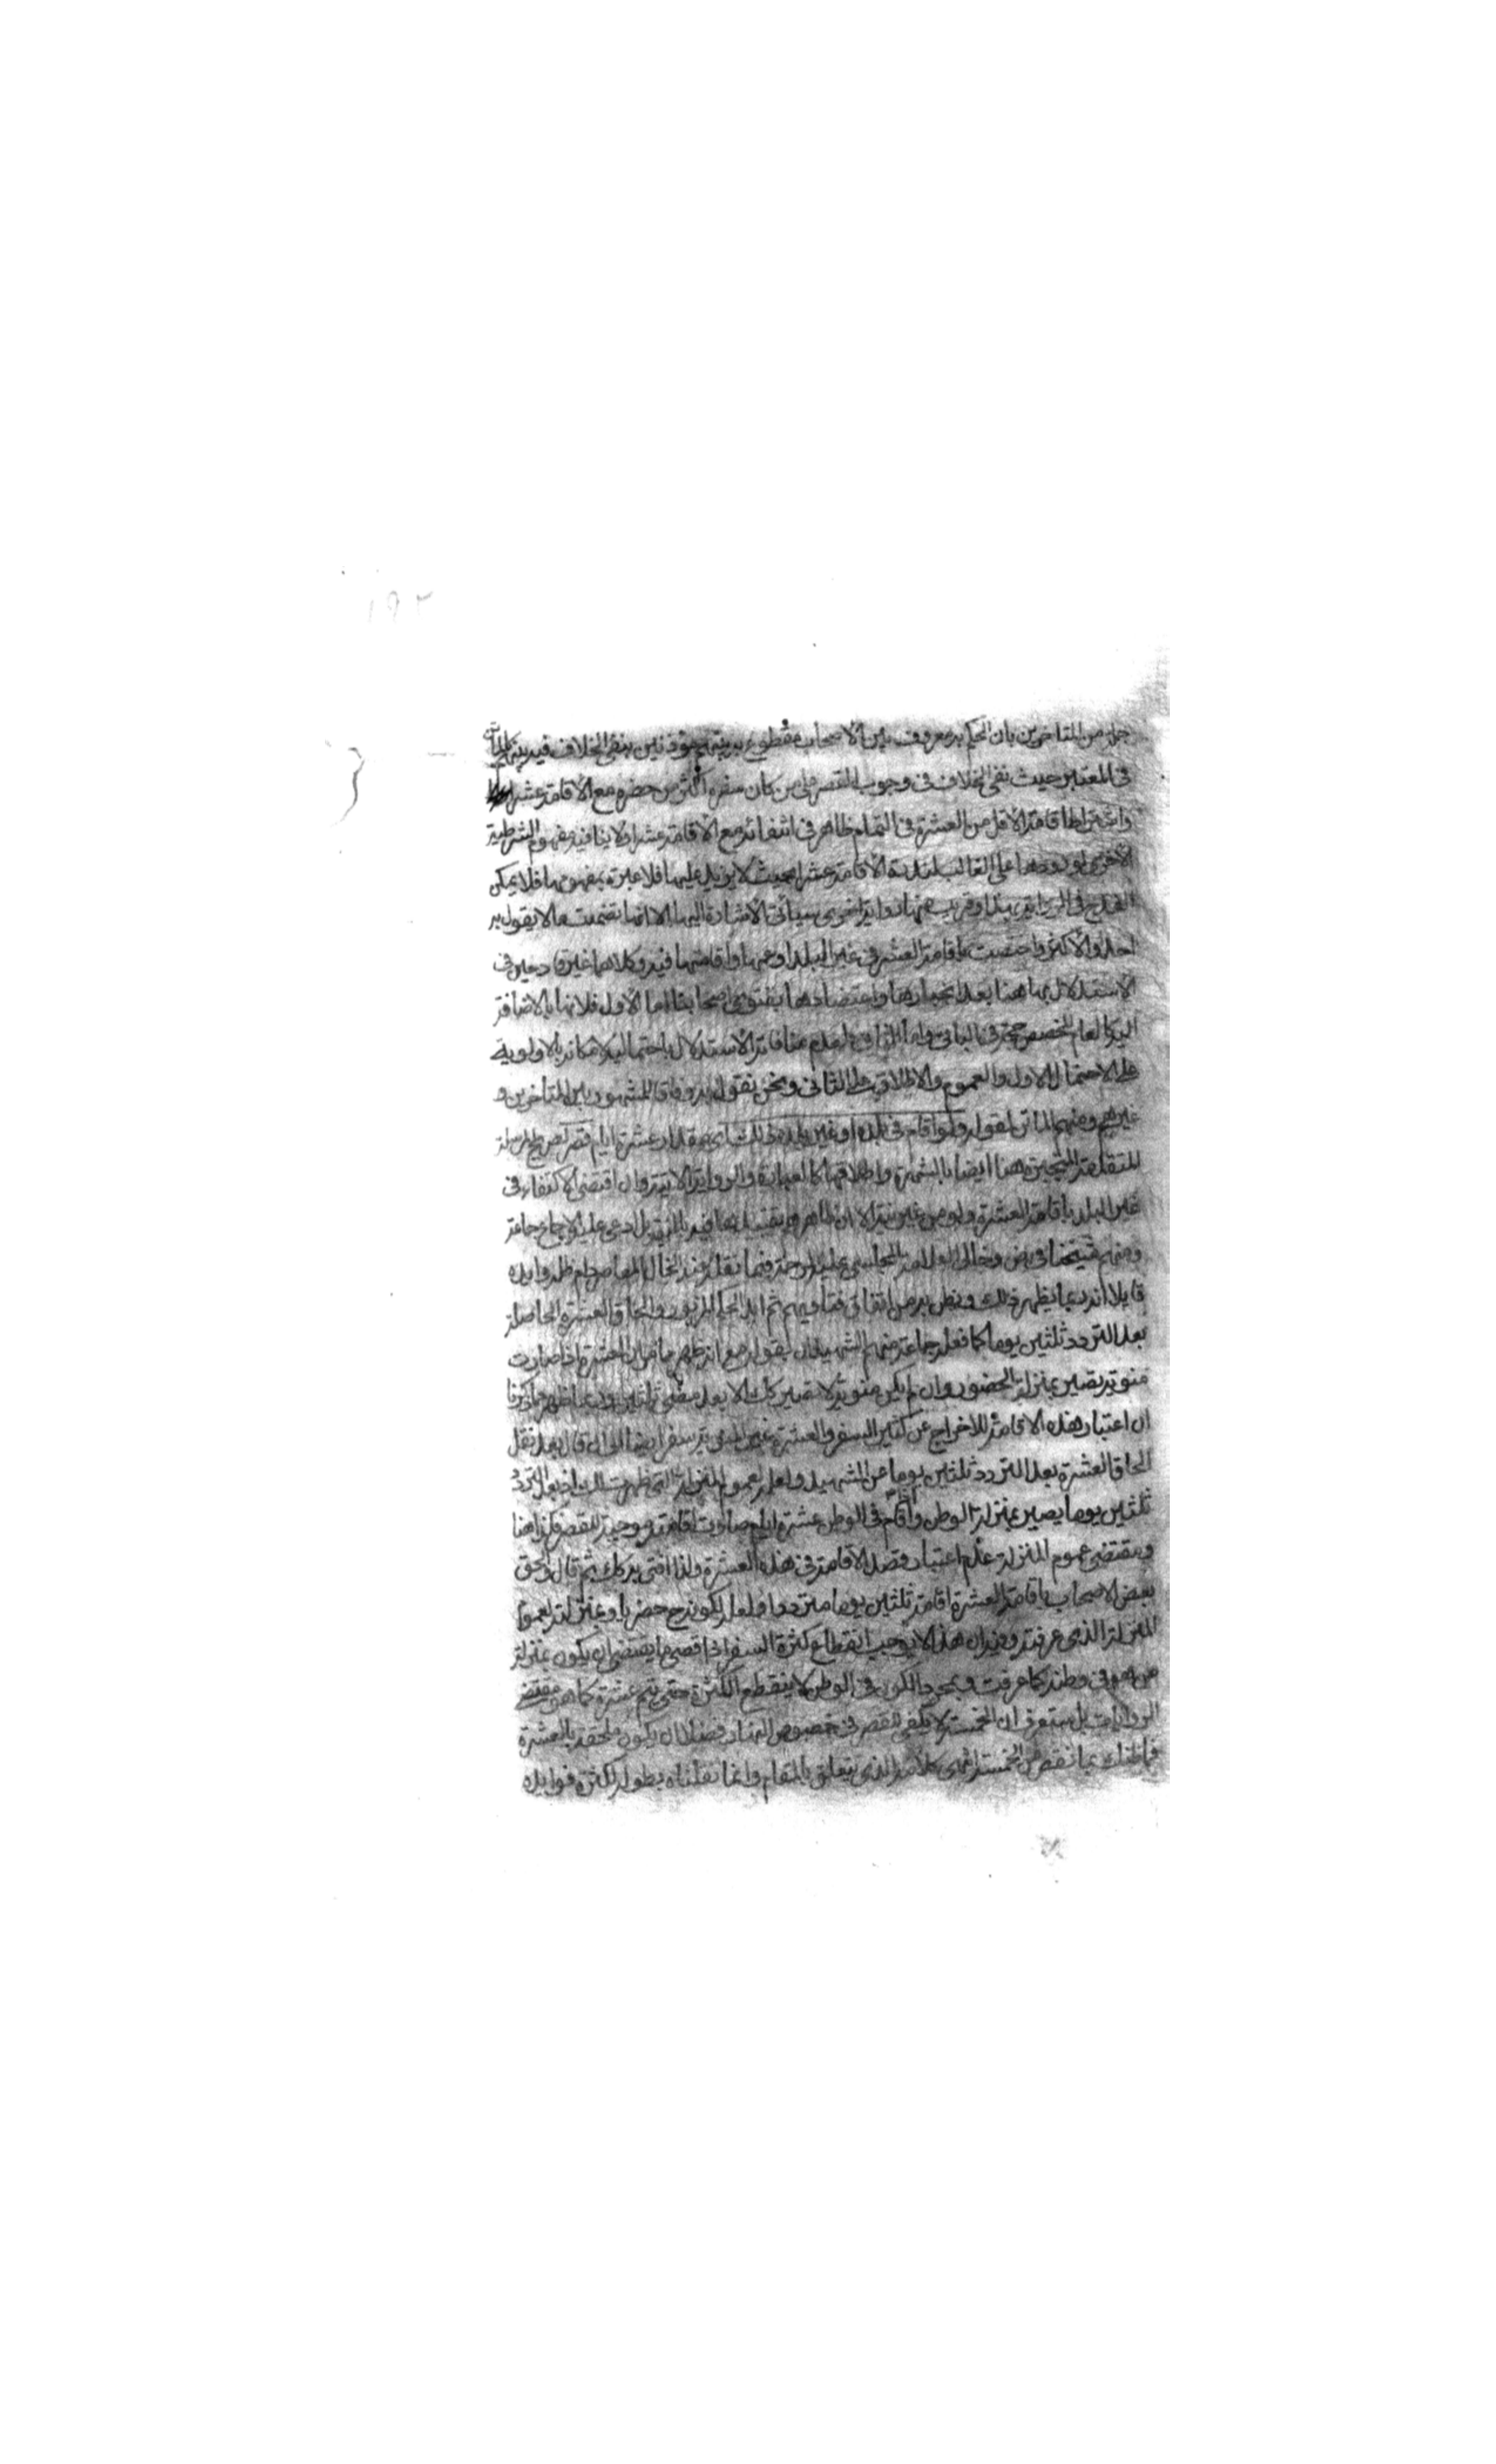 ١٩٢
جملة من المتاخرين بان الحكم به معروف بين الاصحاب مقطوع به بينهم مؤذنين بنفى الخلاف فيه بينهم كالماتن
فى المعتبر حيث نفى الخلاف فى وجوب القصر على من كان سفره اكثر من حضره مع الاقامة عشرا
واشتراط اقامة الاقل من العشرة فى التمام ظاهر فى انتفائه مع الاقامة عشرا ولا ينافيه مفهوم الشرطية
الاخرى لورودها على الغالب لندرة الاقامة عشرا بحيث لا يزيد عليها فلا عبرة بمفهومها فلا يمكن
القدح فى الرواية بهذا وقريب منها رواية اخرى سيأتى الاشارة اليها الا انها تضمنت ما لا يقول به
احد والاكثر واختصت باقامة العشر فى غير البلد او عمها واقامتها فيه وكلاهما غير قادحين فى
الاستدلال بها هنا بعد انجبارها واعتضادها بفتوى اصحابنا اما الاول فلانها بالاضافة
اليه كالعام المخصص حجة فى الباقى واما الثانى فلعدم منافاته الاستدلال باحتماليه لامكانه بالاولوية
على الاحتمال الاول والعموم والاطلاق على الثانى ونحن نقول به وفاقا للمشهور بين المتأخرين و
غيرهم ومنهم الماتن لقوله ولو اقام فى بلده او غير بلده ذلك اى بمقدار عشرة ايام قصر لصريح المرسلة
المتقدمة المنجبرة هنا ايضا بالشهرة واطلاقها كالعبارة والرواية الاتية وان اقتضى الاكتفاء فى
غير البلد باقامة العشرة ولو من غير نية الا ان ظاهرهم تقييدها فيه بالنية بل ادعى عليه الاجماع جماعة
ومنهم شيخنا فى ض وخالى العلامة المجلسى عليه الرحمة فيما نقله عنه الخال المعاصر دام ظله وايده
قايلا انه ربما يظهر ذلك ونظن به من اتفاق فتاويهم ثم ايد الحكم المزبور والحاق العشرة الحاصلة
بعد التردد ثلثين يوما كما فعله جماعة منهم الشهيدان بقوله مع انه ظهر مما مر ان العشرة اذا صارت
منوية يصير بمنزلة الحضور وان لم يكن منوية لا تصير كك الا بعد مضى ثلثين وربما ظهر مما ذكرنا
ان اعتبار هذه الاقامة للاخراج عن كثير السفر والعشرة غير المنوية سفر ايضا الى ان قال بعد نقل
الحاق العشرة بعد التردد ثلثين يوما عن الشهيد ولعله لعموم المنزلة التى ظهرت لك اذ بعد التردد
ثلثين يوما يصير بمنزلة الوطن واذا اقام فى الوطن عشرة ايام صارت اقامته موجبة للقصر فكذا هنا
ومقتضى عموم المنزلة عدم اعتبار قصد الاقامة فى هذه العشرة ولذا افتى به كك ثم قال والحق
بعض الاصحاب باقامة العشرة اقامة ثلثين يوما مترددا ولعله لكونه ح حضريا وبمنزلته لعموم
المنزلة الذى عرفته وفيه ان هذا لا يوجب انقطاع كثرة السفر اذا قصى ما يقتضى ان يكون بمنزلة
من هو فى وطنه كما عرفت وبمجرد الكون فى الوطن لا ينقطع الكثرة حتى يتم عشرة كما هو مقتضى
الروايات بل ستعرف ان الخمسة لا يكفى للقصر فى خصوص النهار فضلا ان يكون ملحقة بالعشرة
فما ظنك بما نقص عن الخمسة انتهى كلامه الذى يتعلق بالمقام وانما نقلناه بطوله لكثرة فوايده